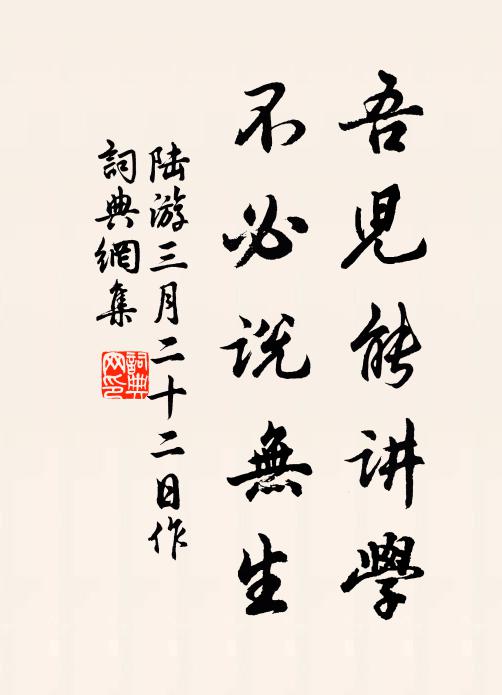 吾児能讲學
不必说無生
陆游三月二十二日作
詞典網集
詞典
网印